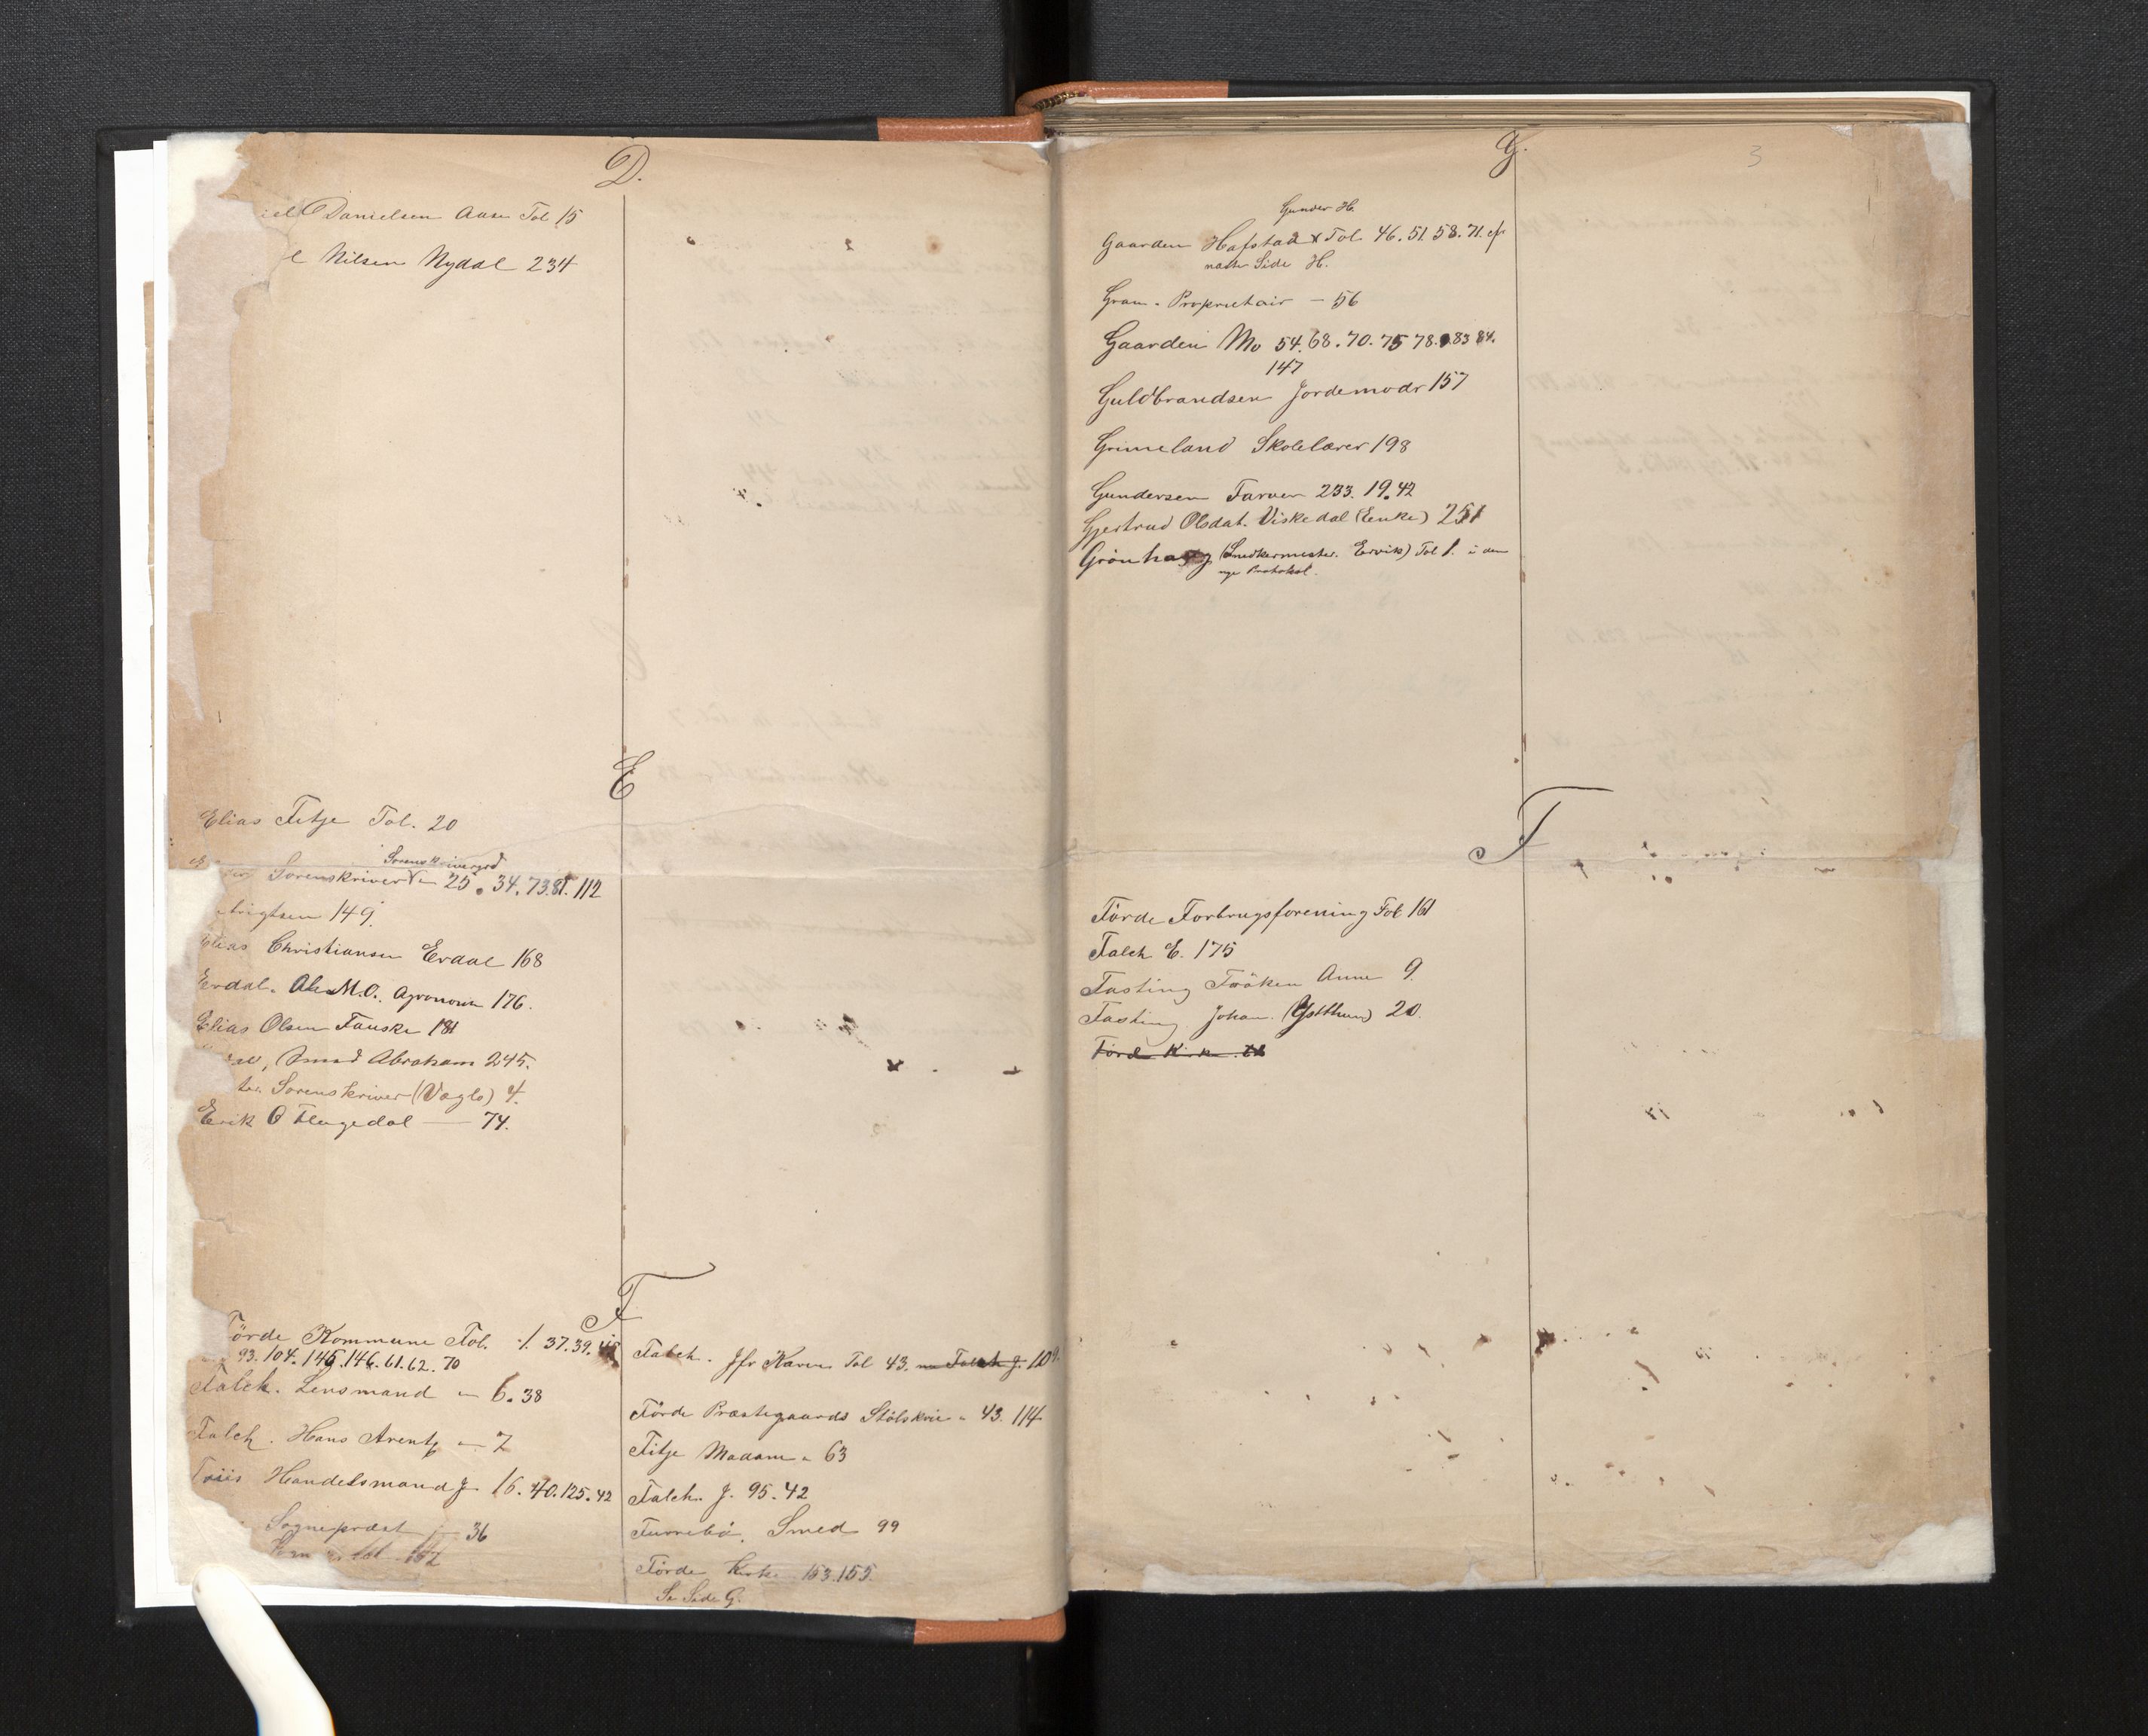 D.
Danielsen Aase Fol 15
Nilsen Nydal 234
E
Elias Fitje Fol. 20
Sorenskrivergrd
Sorenskriver 25. 34. 73. 81. 112
149
Elias Christiansen Erdal 168
Erdal. Ole M.O. Agronom 176.
Elias Olsen Fauske 181
Smed Abraham 245.
Sorenskriver (Vagle) 4.
Erik O Flugedal — 74.
F
Förde Kommune Fol. 1. 37. 39.
93. 104. 145. 146. 61. 62. 70
Falch. Lensmand " 6. 38
Falch. Hans Arentz " 7
Friis Handelsmand J. 16. 40. 125. 42
Sogneprest 36
Falch. Jfr Karen Fol 43. Falch J. 109.
Förde Præstegaards Stölskrie " 43. 114
Fitje Madam " 63
Falch. J. 95. 42
Furrebö, Smed 99
Förde Kirke 153. 155.
Se Side G.
G.
3
Gunder H.
Gaarden Hafstad x Fol. 46. 51. 58. 71. cfr
næste Side H.
Gram. Proprietair — 56
Gaarden Mo 54. 68. 70. 75 78. 83 84.
147
Guldbrandsen Jordemodr 157
Grimeland Skolelærer 198
Gundersen Farver 233. 19. 42
Gjertrud Olsdat. Viskedal (Enke) 251
Grönhaug (Snedkermester. Ervik) Fol 1. i den
nye Protokol.
F
Förde Forbrugsforening Fol 161
Falch E. 175
Fasting Fröken Anne 9.
Fasting Johan. (Ystthun) 20.
Förde Kirke